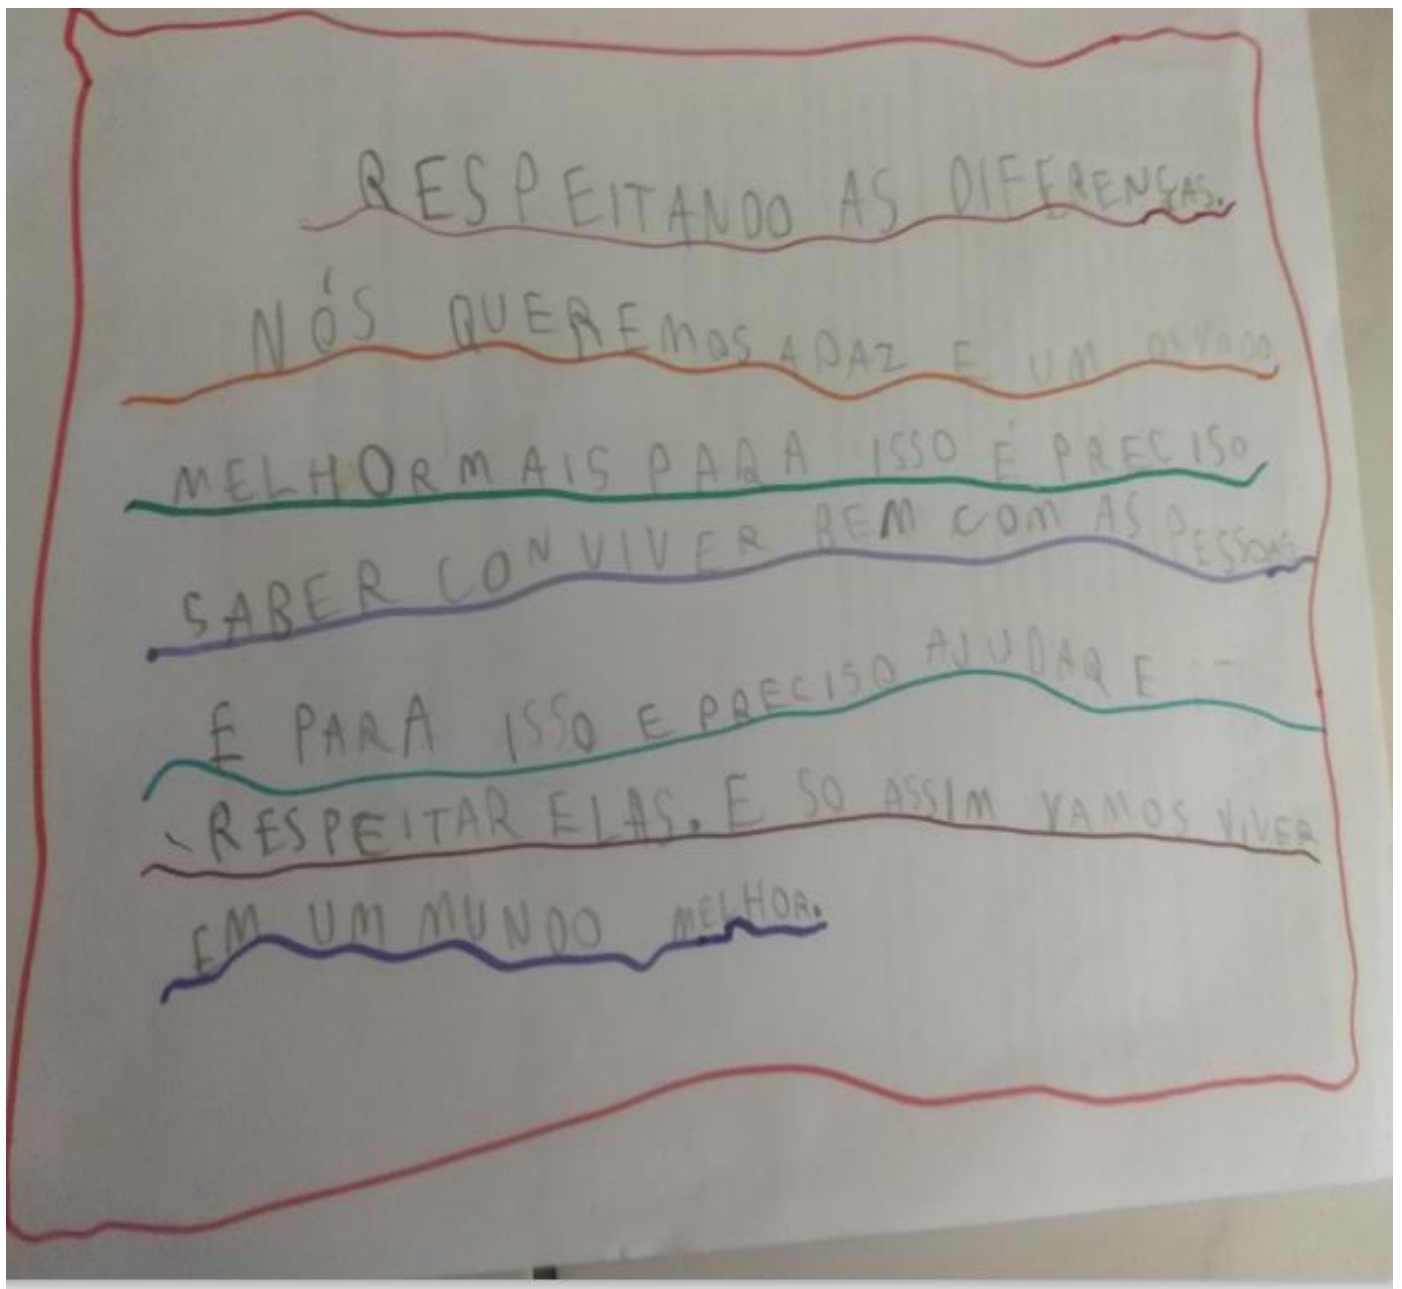 RESPEITANDO AS DIFERENÇAS.
NÓS QUEREMOS APAZ E UM MUNDO
MELHOR MAIS PARA ISSO É PRECISO
SABER CONVIVER BEM COM AS PESSOAS
E PARA ISSO E PRECISO AJUDAR E
RESPEITAR ELAS. E SO ASSIM VAMOS VIVER
EM UM MUNDO MELHOR.